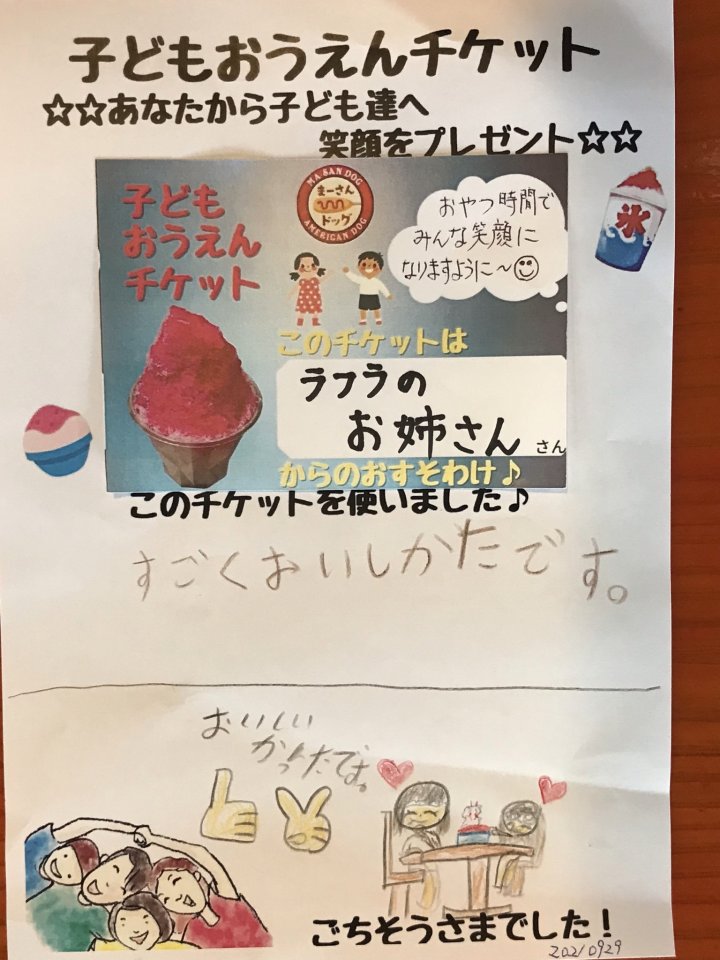 子どもおうえんチケット
☆☆あなたから子ども達へ
笑顔をプレゼント☆☆
子ども
おうえん
チケット
MA SAN DOG
まーさん
ドッグ
AMERICAN DOG
おやつ時間で
みんな笑顔に
なりますように〜
氷
このチケットは
ラフラの
お姉さん さん
からのおすそわけ♪
このチケットを使いました♪
すごくおいしかたです。
おいしい
かったです。
氷
ごちそうさまでした!
20210929